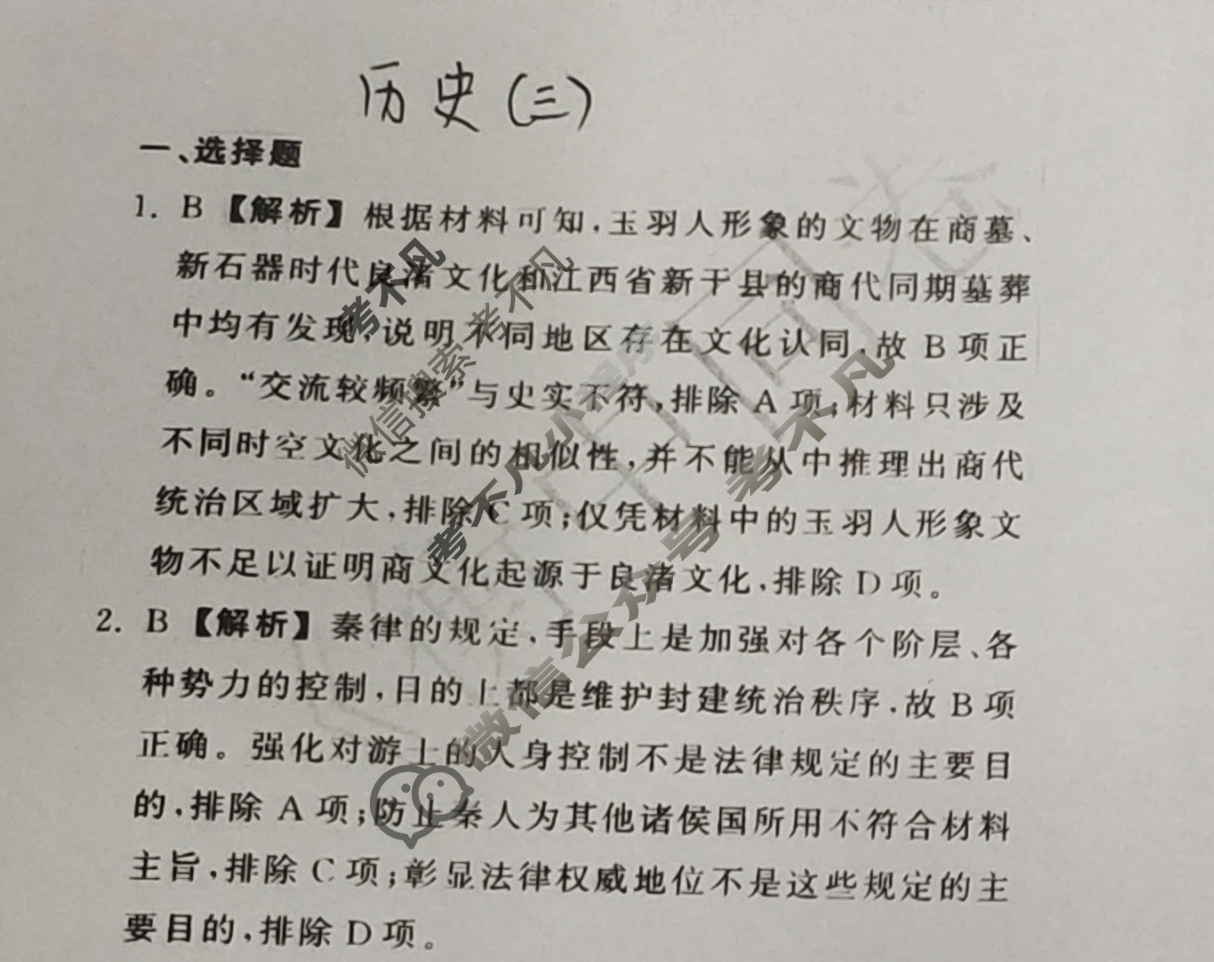 历史(三)
一、选择题
1. B【解析】根据材料可知,玉羽人形象的文物在商墓、
新石器时代良渚文化和江西省新干县的商代同期墓葬
中均有发现,说明不同地区存在文化认同,故 B 项正
确。“交流较频繁”与史实不符,排除 A 项;材料只涉及
不同时空文化之间的相似性,并不能从中推理出商代
统治区域扩大,排除 C 项;仅凭材料中的玉羽人形象文
物不足以证明商文化起源于良渚文化,排除 D 项。
2. B【解析】秦律的规定,手段上是加强对各个阶层、各
种势力的控制,目的上都是维护封建统治秩序,故 B 项
正确。强化对游士的人身控制不是法律规定的主要目
的,排除 A 项;防止秦人为其他诸侯国所用不符合材料
主旨,排除 C 项;彰显法律权威地位不是这些规定的主
要目的,排除 D 项。
考不凡
微信搜索 考不凡
考不凡小程序
微信公众号 考不凡